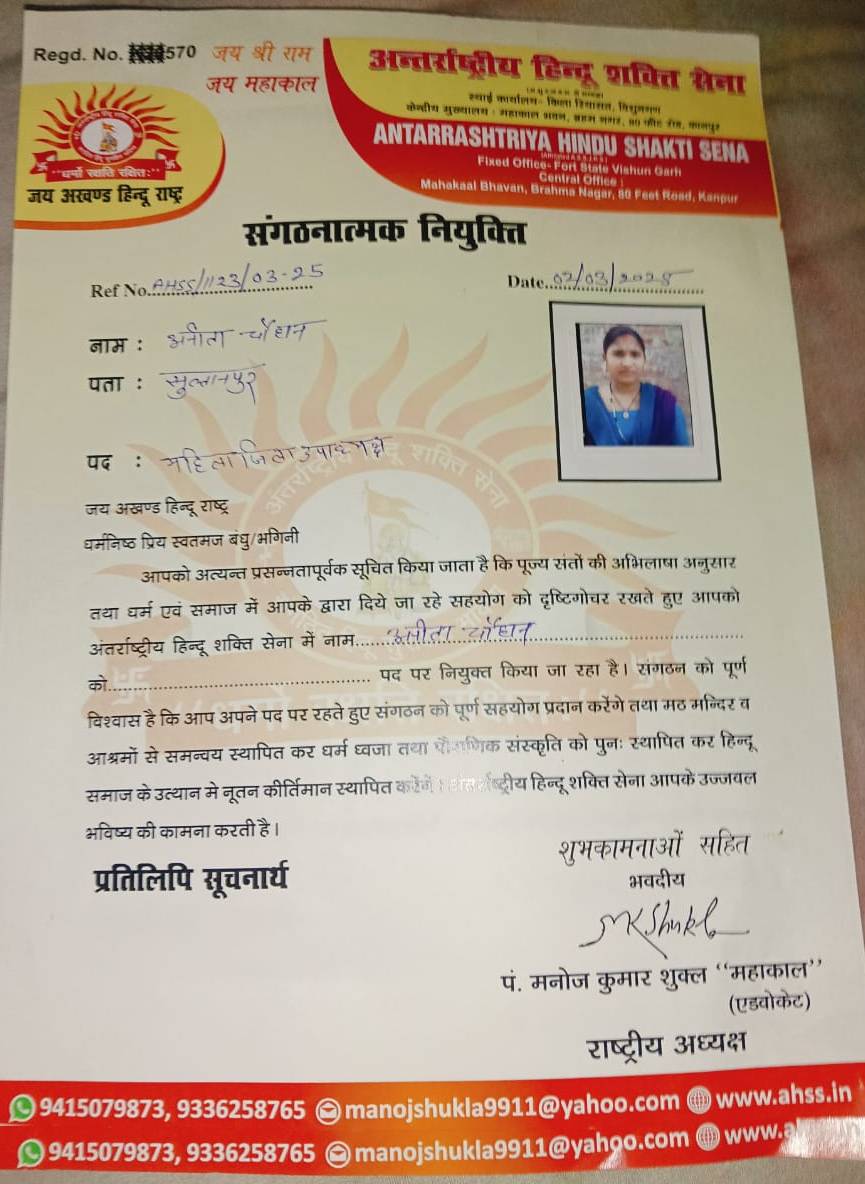 Regd. No. 570
जय श्री राम
जय महाकाल
"धर्मो रक्षति रक्षितः"
जय अखण्ड हिन्दू राष्ट्र
अन्तर्राष्ट्रीय हिन्दू शक्ति सेना
स्थाई कार्यालय- किला रियासत, विशुनगढ़
केन्द्रीय मुख्यालय : महाकाल भवन, ब्रह्म नगर, 80 फीट रोड, कानपुर
ANTARRASHTRIYA HINDU SHAKTI SENA
Fixed Office- Fort State Vishun Garh
Central Office :
Mahakaal Bhavan, Brahma Nagar, 80 Feet Road, Kanpur
संगठनात्मक नियुक्ति
Ref No. AHSS/1123/03-25
Date 02/03/2025
नाम : अनीता चौहान
पता : सुल्तानपुर
पद : महिला जिला उपाध्यक्ष
जय अखण्ड हिन्दू राष्ट्र
धर्मनिष्ठ प्रिय स्वतमज बंधु/भगिनी
आपको अत्यन्त प्रसन्नतापूर्वक सूचित किया जाता है कि पूज्य संतों की अभिलाषा अनुसार
तथा धर्म एवं समाज में आपके द्वारा दिये जा रहे सहयोग को दृष्टिगोचर रखते हुए आपको
अंतर्राष्ट्रीय हिन्दू शक्ति सेना में नाम...अनीता चौहान...
को... पद पर नियुक्त किया जा रहा है। संगठन को पूर्ण
विश्वास है कि आप अपने पद पर रहते हुए संगठन को पूर्ण सहयोग प्रदान करेंगे तथा मठ मन्दिर व
आश्रमों से समन्वय स्थापित कर धर्म ध्वजा तथा पौराणिक संस्कृति को पुनः स्थापित कर हिन्दू
समाज के उत्थान मे नूतन कीर्तिमान स्थापित करेंगें। अंतर्राष्ट्रीय हिन्दू शक्ति सेना आपके उज्जवल
भविष्य की कामना करती है।
प्रतिलिपि सूचनार्थ
शुभकामनाओं सहित
भवदीय
MKShukla
पं. मनोज कुमार शुक्ल "महाकाल"
(एडवोकेट)
राष्ट्रीय अध्यक्ष
9415079873, 9336258765 manojshukla9911@yahoo.com www.ahss.in
9415079873, 9336258765 manojshukla9911@yahoo.com www.a